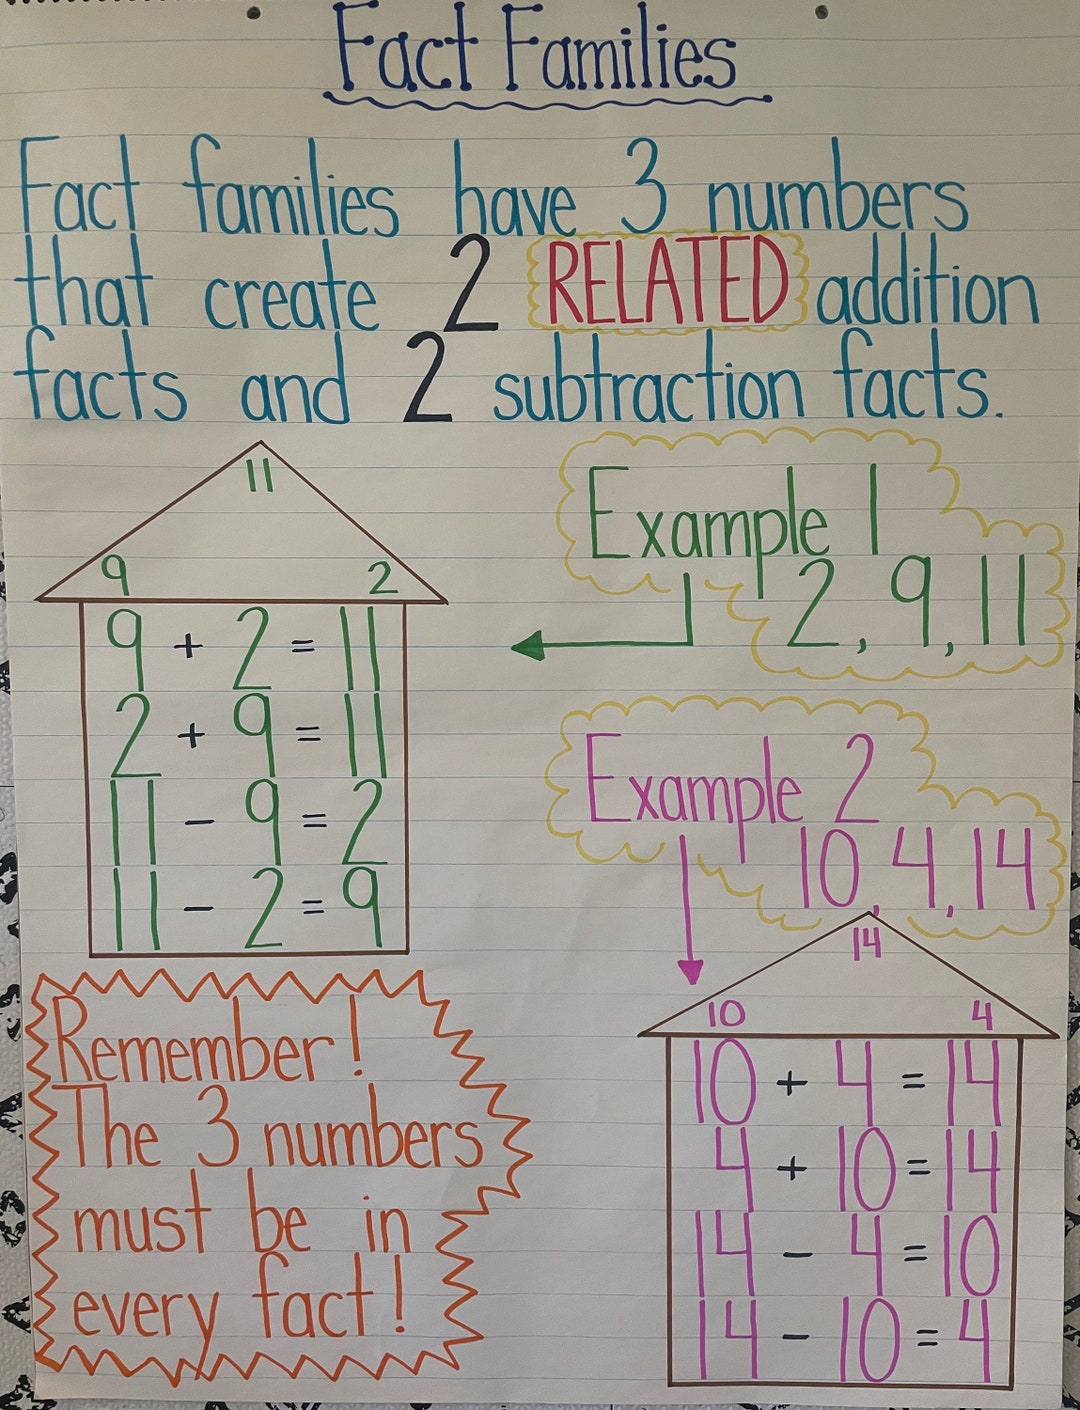 Fact Families
Fact families have 3 numbers
that create 2 RELATED addition
facts and 2 subtraction facts.
11
9 2
9 + 2 = 11
2 + 9 = 11
11 - 9 = 2
11 - 2 = 9
Example 1
2, 9, 11
Example 2
10, 4, 14
14
10 4
10 + 4 = 14
4 + 10 = 14
14 - 4 = 10
14 - 10 = 4
Remember!
The 3 numbers
must be in
every fact!